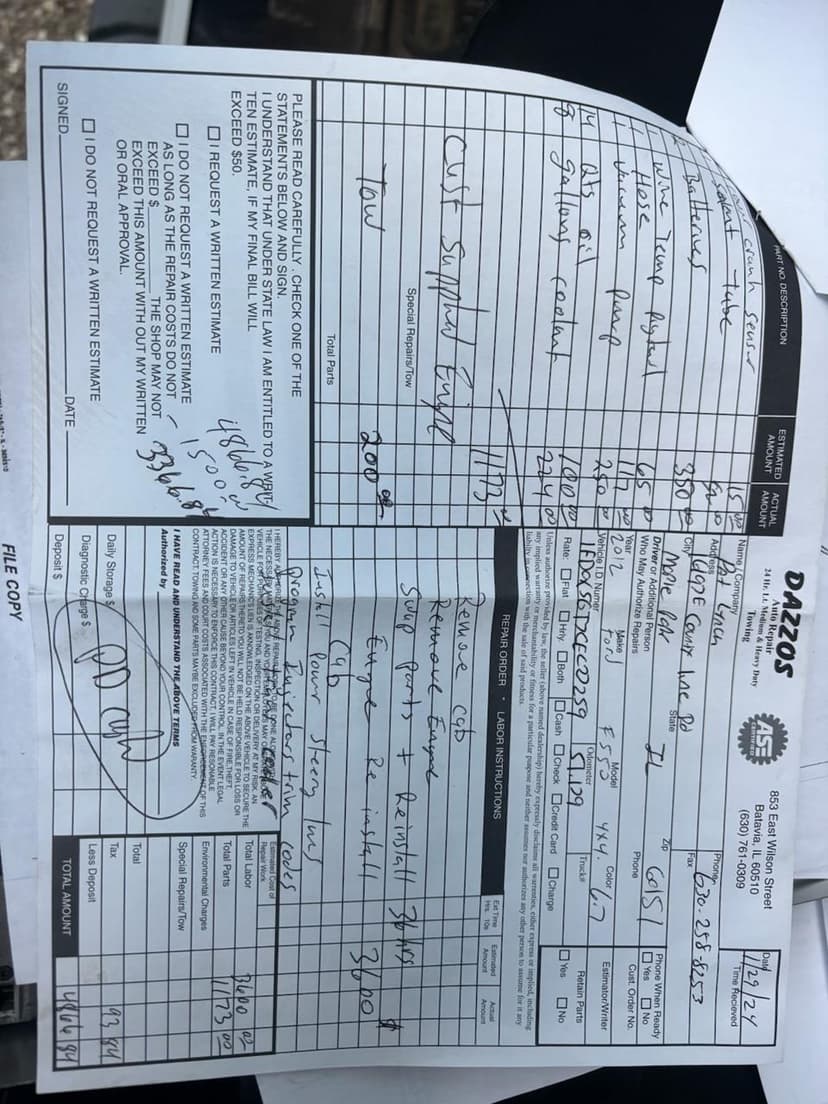 DAZZOS
Auto Repair
24 Hr. Lt. Medium & Heavy Duty
Towing
ASE
CERTIFIED
853 East Wilson Street
Batavia, IL 60510
(630) 761-0309
Date
1/29/24
Time Recieved
Name / Company
Pat Lynch
Phone
630-258-8253
Address
County Line Rd
Fax
City
Maple Park
State
IL
Zip
60151
Driver or Additional Person
Who May Authorize Repairs
Phone
Phone When Ready
☐ Yes ☐ No
Year
2012
Make
Ford
Model
F550
4x4
Color
6.7
Cust. Order No.
Vehicle I.D. Number
Odometer
51,129
Truck#
Estimator/Writer
Rate: ☐ Flat ☐ Hrly. ☐ Both ☐ Cash ☐ Check ☐ Credit Card ☐ Charge
Retain Parts
☐ Yes ☐ No
Unless authorize provided by law, the seller (above named dealership) hereby expressly disclaims all warranties, either express or implied, including
any implied warranty or merchantability or fitness for a particular purpose and neither assumes nor authorizes any other person to assume for it any
liability in connection with the sale of said products.
PART NO. DESCRIPTION
ESTIMATED AMOUNT
ACTUAL AMOUNT
crank sensor 15.00
coolant tube
Batteries 350.00
wire Temp Pigtail 65.00
1 Hose 117.00
1 Vacuum Pump 250.00
14 Qts oil 100.00
8 gallons coolant 224.00
1173.00
Cust Supplied Engine
Special Repairs/Tow
Tow 200.00
Total Parts
REPAIR ORDER • LABOR INSTRUCTIONS
Est Time
Hrs. 10s
Estimated
Amount
Actual
Amount
Remove cab
Remove Engine
Swap parts + Reinstall 36 hrs
Engine Reinstall 3600
Cab
Install Power Steering lines
Program Injectors trim codes
PLEASE READ CAREFULLY, CHECK ONE OF THE
STATEMENTS BELOW AND SIGN.
I UNDERSTAND THAT UNDER STATE LAW I AM ENTITLED TO A WRIT-
TEN ESTIMATE, IF MY FINAL BILL WILL
EXCEED $50.
☐ I REQUEST A WRITTEN ESTIMATE
☐ I DO NOT REQUEST A WRITTEN ESTIMATE
AS LONG AS THE REPAIR COSTS DO NOT
EXCEED $ THE SHOP MAY NOT
EXCEED THIS AMOUNT WITH OUT MY WRITTEN
OR ORAL APPROVAL.
☐ I DO NOT REQUEST A WRITTEN ESTIMATE
SIGNED DATE
4866.84
- 1500.00
3366.84
VEHICLE FOR PURPOSES OF TESTING, INSPECTION OR DELIVERY AT MY RISK. AN
EXPRESS MECHANICS LIEN IS ACKNOWLEDGED ON THE ABOVE VEHICLE TO SECURE THE
AMOUNT OF REPAIRS THERETO YOU WILL NOT BE HELD RESPONSIBLE FOR LOSS OR
DAMAGE TO VEHICLE OR ARTICLES LEFT IN VEHICLE IN CASE OF FIRE, THEFT,
ACCIDENT OR ANY OTHER CAUSE BEYOND YOUR CONTROL. IN THE EVENT LEGAL
ACTION IS NECESSARY TO ENFORCE THIS CONTRACT, I WILL PAY RESONABLE
ATTORNEY FEES AND COURT COSTS ASSOCIATED WITH THE ENFORCEMENT OF THIS
CONTRACT. TOWING AND SOME PARTS MAYBE EXCLUDED FROM WARANTY.
I HAVE READ AND UNDERSTAND THE ABOVE TERMS
Authorized by
Daily Storage $
Diagnostic Charge $
Deposit $
Estimated Cost of
Repair Work
Total Labor 3600.00
Total Parts 1173.00
Environmental Charges
Special Repairs/Tow
Total
Tax 93.84
Less Deposit
TOTAL AMOUNT 4866.84
FILE COPY